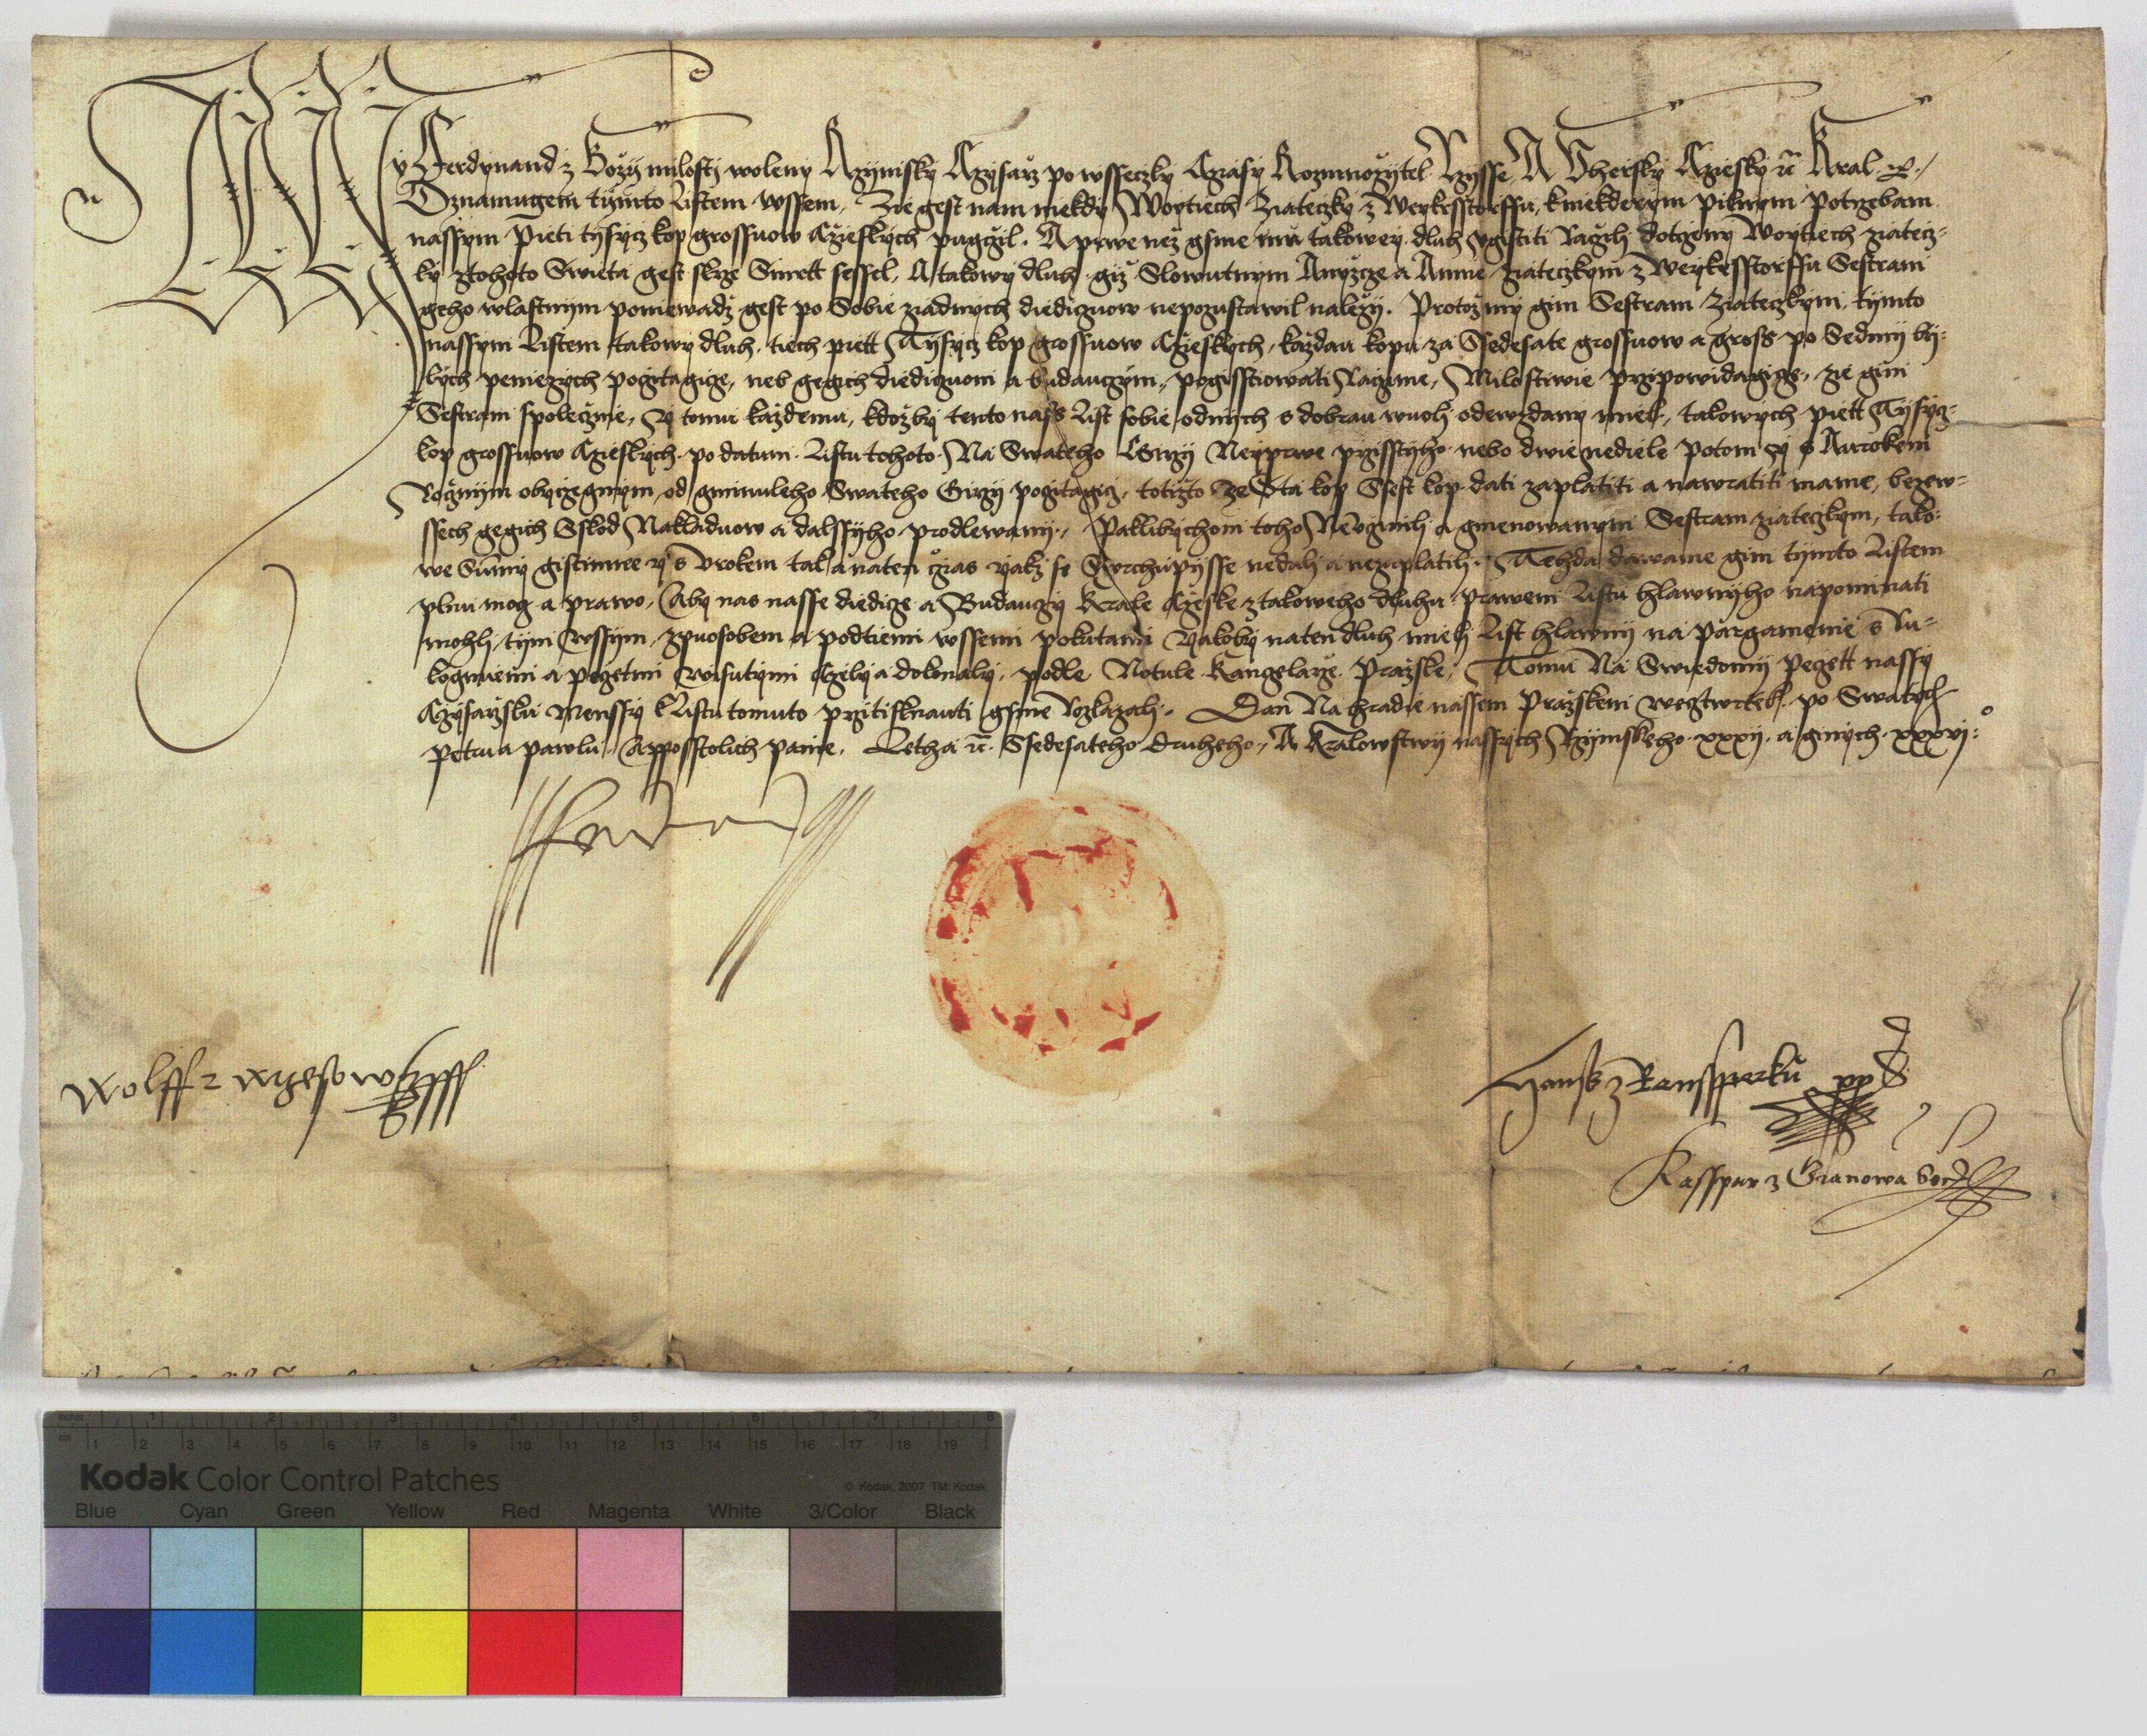 My Ferdynand z Bozy milosti woleny Rzymsky Czysarz po wsseczky Czasy Rozmnozytel Rzysse A Vhersky Cziesky ꝛc̃ Kral ꝛc.
Oznamugem tymto Listem wssem, Zie gest nam niekdy Woytiech Ziateczky z Weykersstorffu, k niekderym pilnym potrzebam
nassym Pieti tysycz kop grossuow Czieskych pugczil. A prwe nez gsme mu takowey dluh vgistiti raczili dotczeny Woytiech ziatecz-
ky z tohoto Swieta gest skrze Smrtt sessel, A takowy dluh giz Slowutnym Anyzcze a Annie ziateczkym z Weykersstorffu Sestram
geho wlastnym poniewadz gest po Sobie ziadnych diediczuow nepozustawil nalezy. Protoz my gim Sestram Ziateczkym, tymto
nassym Listem takowy dluh tiech piett Tysycz kop grossuow Czieskych, kazdau kopu za Ssedesate grossuow a gross po Sedmi by-
lych peniezych poczitagicze, neb gegich diediczuom a budauczym, pogisstiowati raczime, Milostiwie przipowidagicze, zie gim
Sestram spolecznie, Neb tomu kazdemu, kdozby tento nass List sobie od nych s dobrau wuoli odewzdany miel, takowych piett Tysycz-
kop grossuow Czieskych po datum Listu tohoto Na Swateho Girzy Neyprwe przisstyho nebo dwie nediele potom zy s Aurokem
Rocznym obyczegnym, od gminuleho Swateho Girzy poczitagicz, totizto ze Sta kop Ssest kop dati zaplatiti a nawratiti mame, bezew-
ssech gegich Sskod Nakladuow a dalssyho prodlewany. Paklibychom toho Nevczinili a gmenowanym Sestram ziateczkym, tako-
we Sumy gistinnee y s Vrokem tak a na ten czas yakz se Swrchupysse nedali a nezaplatili, Tehda dawame gim tymto Listem
plnu mog a prawo, Aby nas nasse diedicze a Budauczy Krale Czeske z takoweho dluhu prawem Listu hlawnyho napominati
mohli, tym wssym zpuosobem a pod tiemi wssemi pokutami Yakoby na ten dluh mieli List hlawny na pargamenie s Ru-
kogmiemi a peczetmi wisutymi Czely a dokonaly, podle Notule Kanczelarze Prazske, Tomu Na Swiedomy Peczett nassy
Czysarzsku menssy k Listu tomuto przitisknauti gsme rozkazali. Dan Na hradie nassem Prazskem we cztwrtek po Swatych
Petru a Pawlu Apposstolich panie. Letha ꝛc̃ Ssedesateho druheho, A Kralowstwy nassych Rzymskeho xxxij a ginych xxxvj°
Wolff z Wrzesowicz
Hanss z Ranssperku
Kasspar z Granowa
Kodak Color Control Patches
© Kodak, 2007 TM: Kodak
inches 1 2 3 4 5 6 7 8
cm 1 2 3 4 5 6 7 8 9 10 11 12 13 14 15 16 17 18 19
Blue Cyan Green Yellow Red Magenta White 3/Color Black